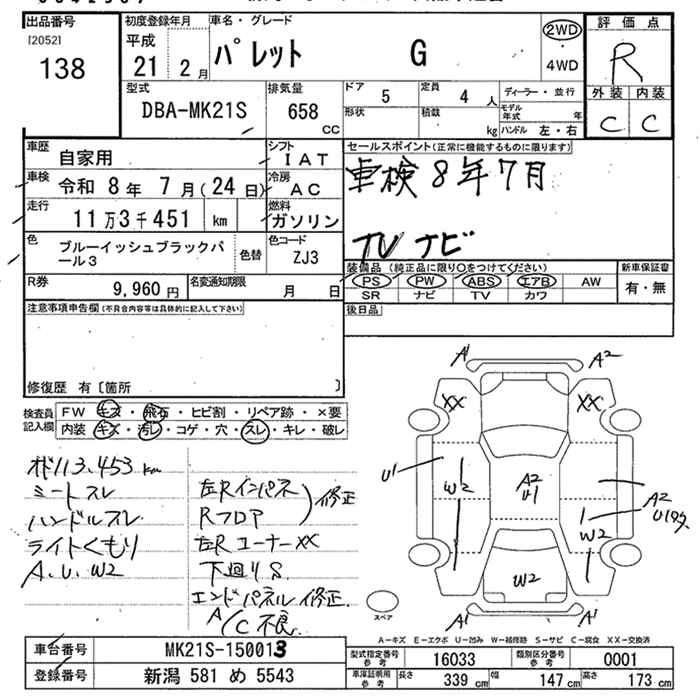 出品番号
[2052]
138
初度登録年月
平成
21 2 月
車名・グレード
パレット G
2WD
・
4WD
評価点
R
外装 内装
C C
型式
DBA-MK21S
排気量
658
CC
ドア
5
定員
4 人
形状
積載
kg
ディーラー・並行
モデル年式 年
ハンドル 左・右
車歴
自家用
シフト
I A T
車検
令和 8 年 7 月 (24 日)
冷房
A C
走行
11 万 3 千 451 km
燃料
ガソリン
色
ブルーイッシュブラックパール3
色替
色コード
ZJ3
R券
9,960 円
名変通知期限
月 日
セールスポイント(正常に機能するものに限ります)
車検8年7月
TV ナビ
装備品 (純正品に限り○をつけてください)
PS PW ABS エアB AW
SR ナビ TV カワ
新車保証書
有・無
後日品
注意事項申告欄(不具合内容等は具体的に記入して下さい)
修復歴 有〔箇所 〕
検査員記入欄
FW キズ・飛石・ヒビ割・リペア跡・×要
内装 キズ・汚レ・コゲ・穴・スレ・キレ・破レ
113,453 km
ミートスレ
ハンドルスレ
ライトくもり
A.U.W2
左Rインパネ
Rフロア
修正
左R コーナーXX
下廻りS
エンドパネル修正
A/C不良
A1 A2
XX XX
U1
W2
A2
U1
A2
W2
W2
A1 A1
スペア
A－キズ E－エクボ U－凹み W－補修跡 S－サビ C－腐食 XX－交換済
車台番号
MK21S-150013
登録番号
新潟 581 め 5543
型式指定番号
参考
16033
類別区分番号
参考
0001
車庫証明用
参考
長さ
339 cm
幅
147 cm
高さ
173 cm